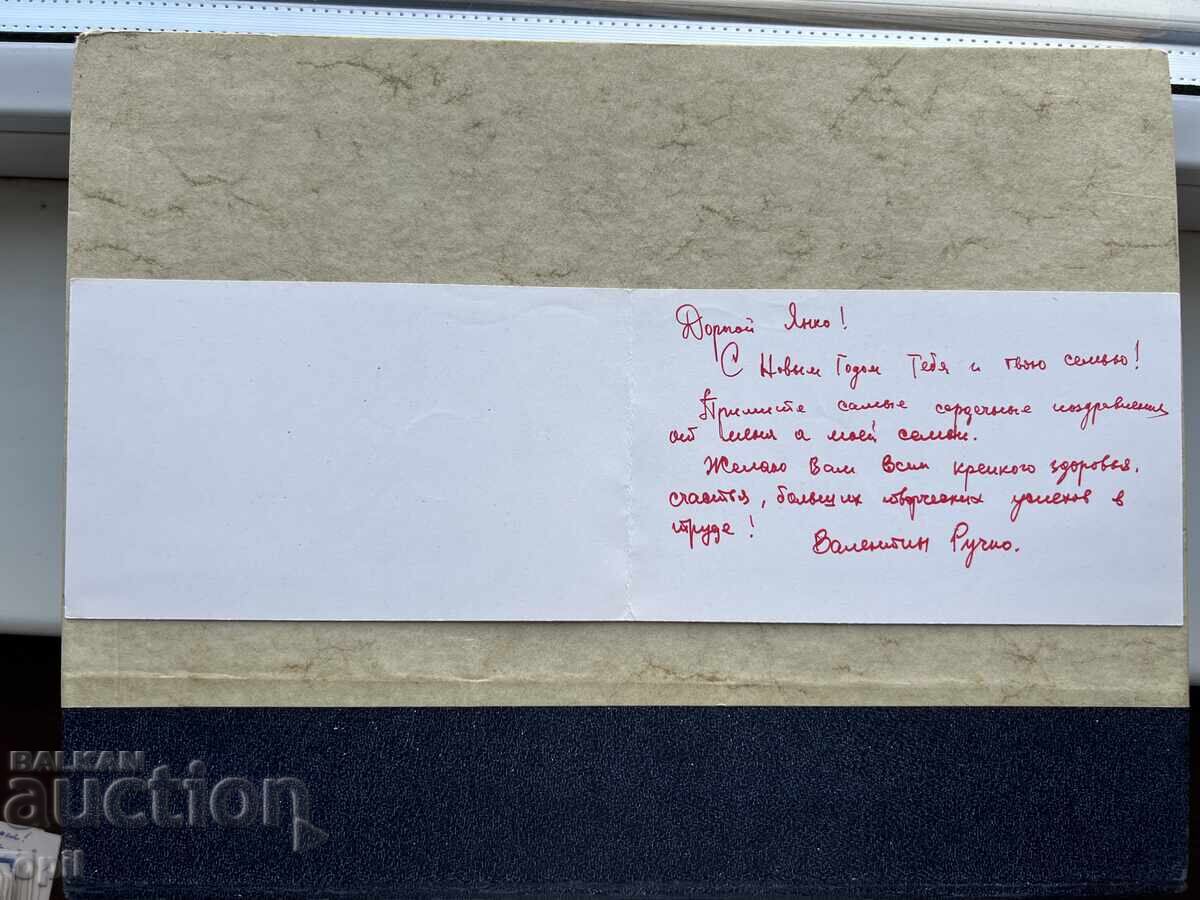 Дорогой Янко!
С Новым Годом Тебя и твою семью!
Примите самые сердечные поздравления
от меня и моей семьи.
Желаю Вам всем крепкого здоровья,
счастья, больших творческих успехов в
труде!
Валентин Ручко.
BALKAN
auction
opil